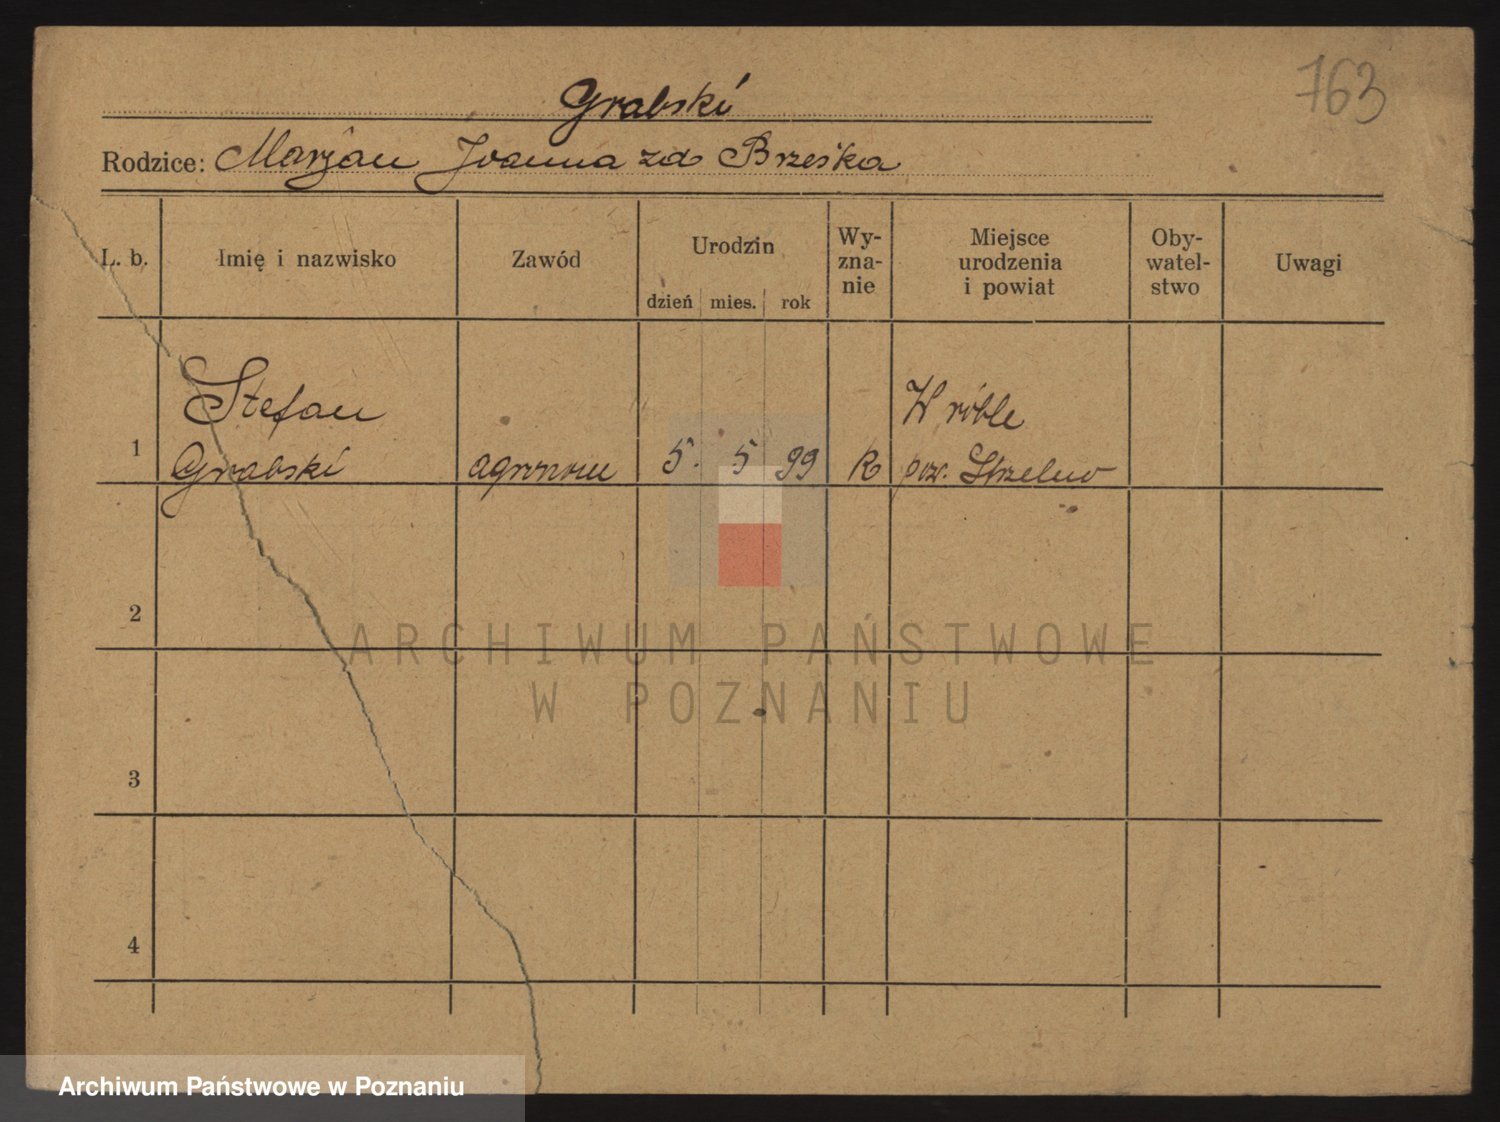 763
Grabski
Rodzice: Marjan Joanna zd Brzeska
L. b. Imię i nazwisko Zawód Urodzin dzień mies. rok Wy-zna-nie Miejsce urodzenia i powiat Oby-watel-stwo Uwagi
Stefan Wróble
1 Grabski agronom 5. 5 99 R pow. Strzelno
2
ARCHIWUM PAŃSTWOWE
W POZNANIU
3
4
Archiwum Państwowe w Poznaniu